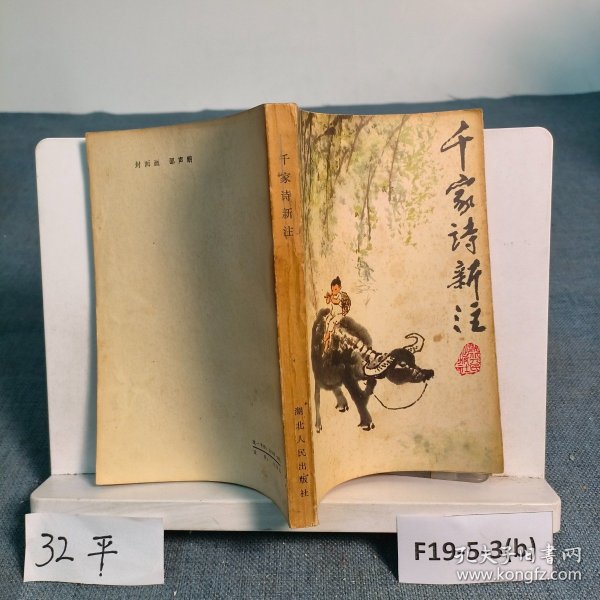 封面画 邵声朗
千家诗新注
湖北人民出版社
千家诗新注
32平
F19-5-3(b)
孔夫子旧书网
www.kongfz.com